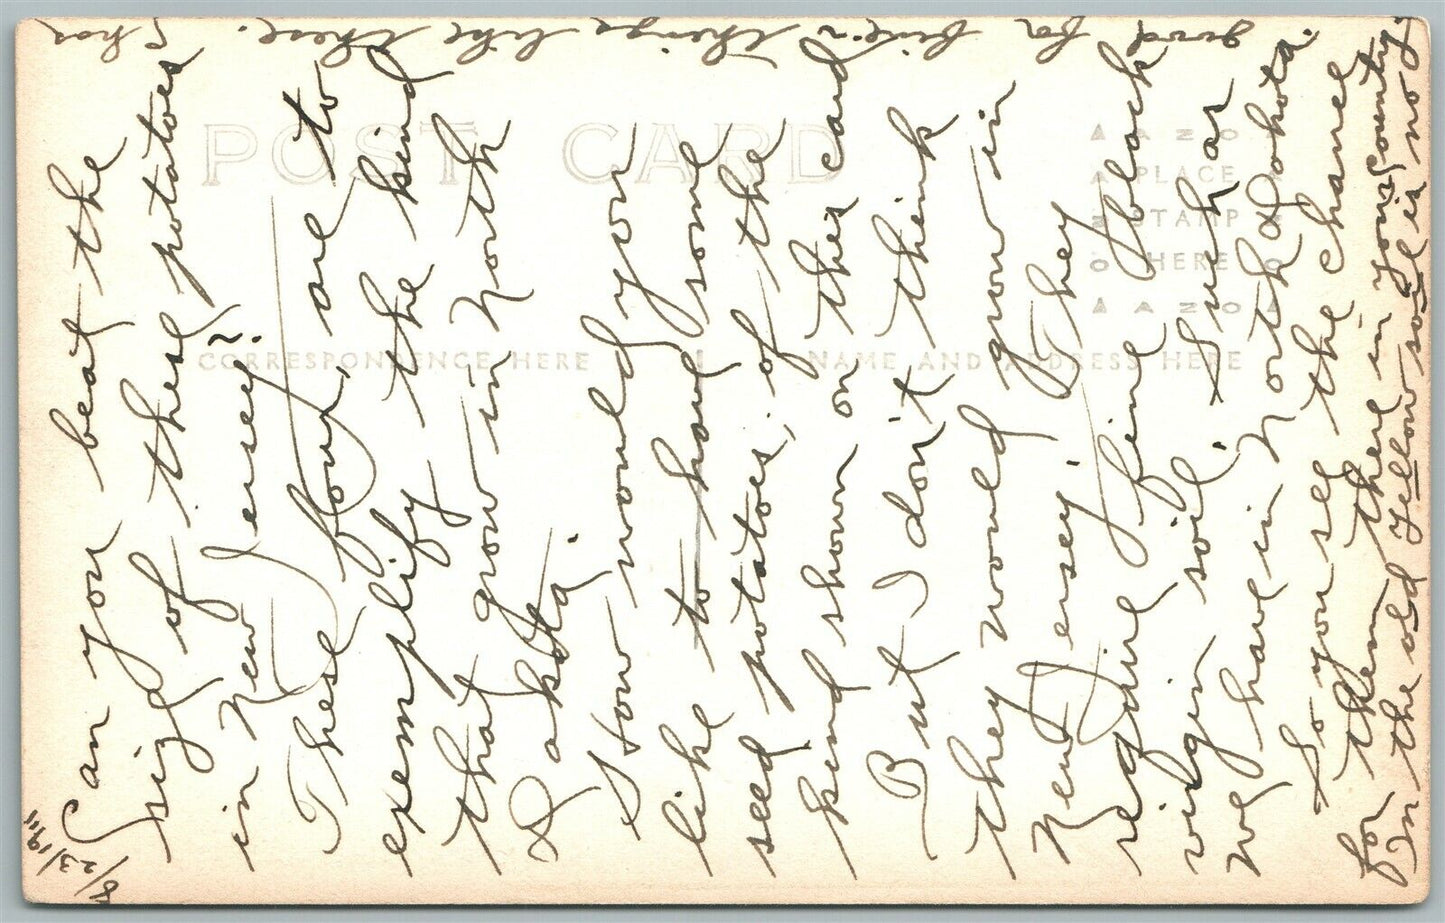 8/23/1911
Can you beat the
sight of these potatoes
in New Jersey?
These four, are to
exemplify the kind
that grow in North
Dakota.
How would you
like to have some
seed potatoes, of the
kind shown on this card
But I don't think
they would grow in
New Jersey. They
require fine black
virgin soil. Such as
we have in North Dakota.
So you see the chance
for them there in your county
In the old yellow soil is no
good for things like these. Chas
POST CARD
CORRESPONDENCE HERE
NAME AND ADDRESS HERE
AZO
PLACE
STAMP
HERE
AZO